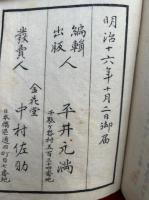 明治十六年十月二日御届
編輯人
出版
平井元満
千駄ヶ谷村五百三十四番地
金花堂
發賣人
中村佐助
日本橋區通四丁目七番地